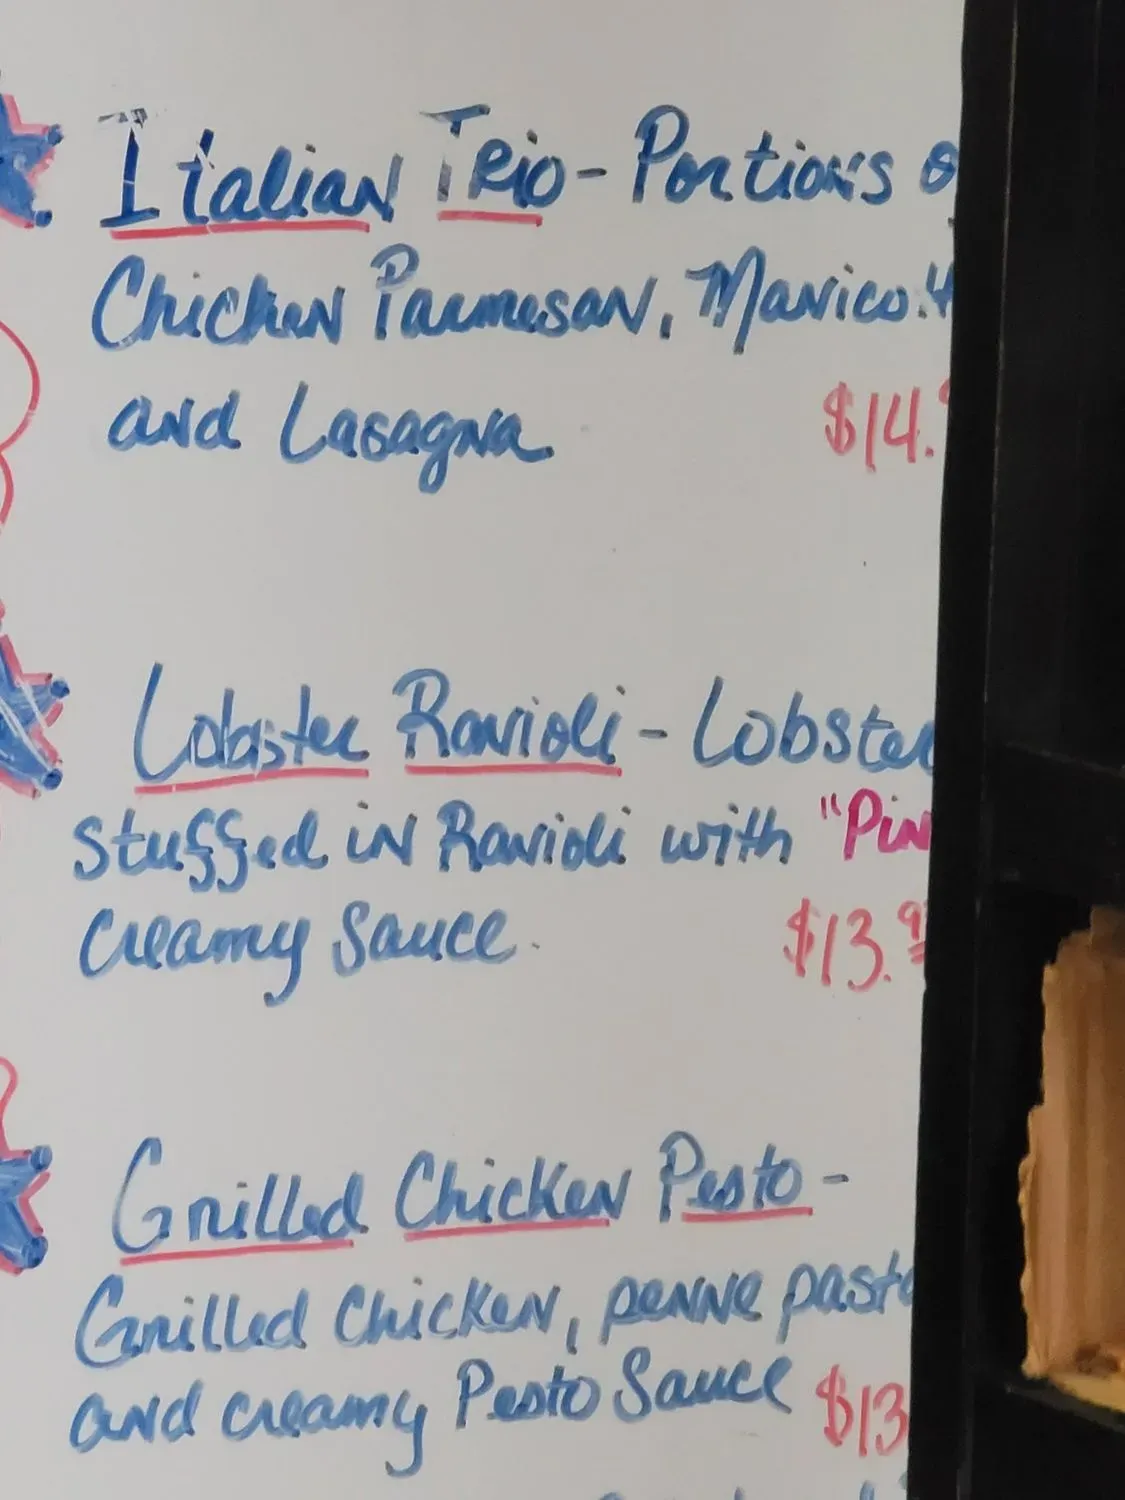 Italian Trio - Portions o
Chicken Parmesan, Manicott
and Lasagna $14.
Lobster Ravioli - Lobster
stuffed in Ravioli with "Pin
Creamy Sauce $13.9
Grilled Chicken Pesto -
Grilled Chicken, penne pasta
and creamy Pesto Sauce $13